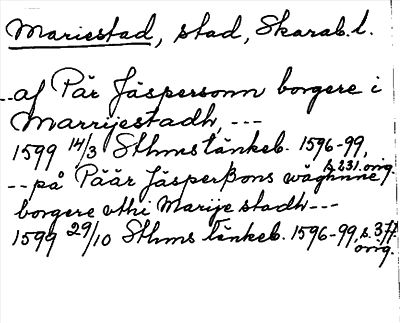 Mariestad, stad, Skarab. l.
--af Pär Jäspersonn borgere i
Marrijestadh, ---
1599 14/3 Sthms tänkeb. 1596-99,
s. 231. orig.
--på Päär Jäsperßons wägnne
borgere vthi Marije stadh ---
1599 29/10 Sthms tänkeb. 1596-99, s. 377.
orig.